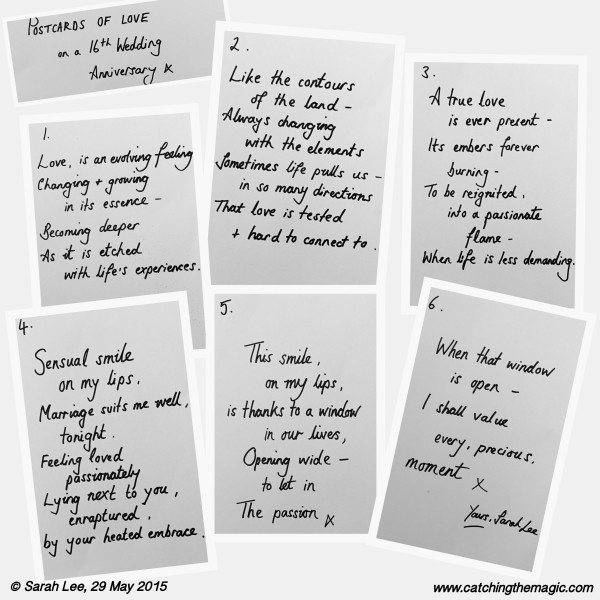 POSTCARDS OF LOVE
on a 16th Wedding
Anniversary X
1.
Love, is an evolving feeling
Changing + growing
in its essence –
Becoming deeper
As it is etched
with life's experiences.
2.
Like the contours
of the land –
Always changing
with the elements
Sometimes life pulls us –
in so many directions
That love is tested
+ hard to connect to.
3.
A true love
is ever present –
Its embers forever
burning –
To be reignited,
into a passionate
flame –
When life is less demanding.
4.
Sensual smile
on my lips,
Marriage suits me well,
tonight.
Feeling loved
passionately
Lying next to you,
enraptured,
by your heated embrace.
5.
This smile,
on my lips,
is thanks to a window
in our lives,
Opening wide –
to let in
The passion X
6.
When that window
is open –
I shall value
every, precious,
moment X
Yours, Sarah Lee
© Sarah Lee, 29 May 2015
www.catchingthemagic.com